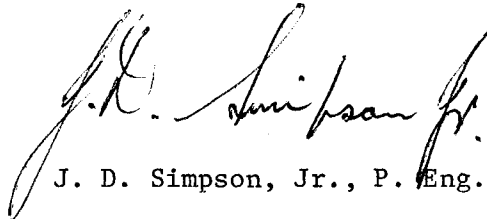 J.D. Simpson Jr.
J. D. Simpson, Jr., P. Eng.